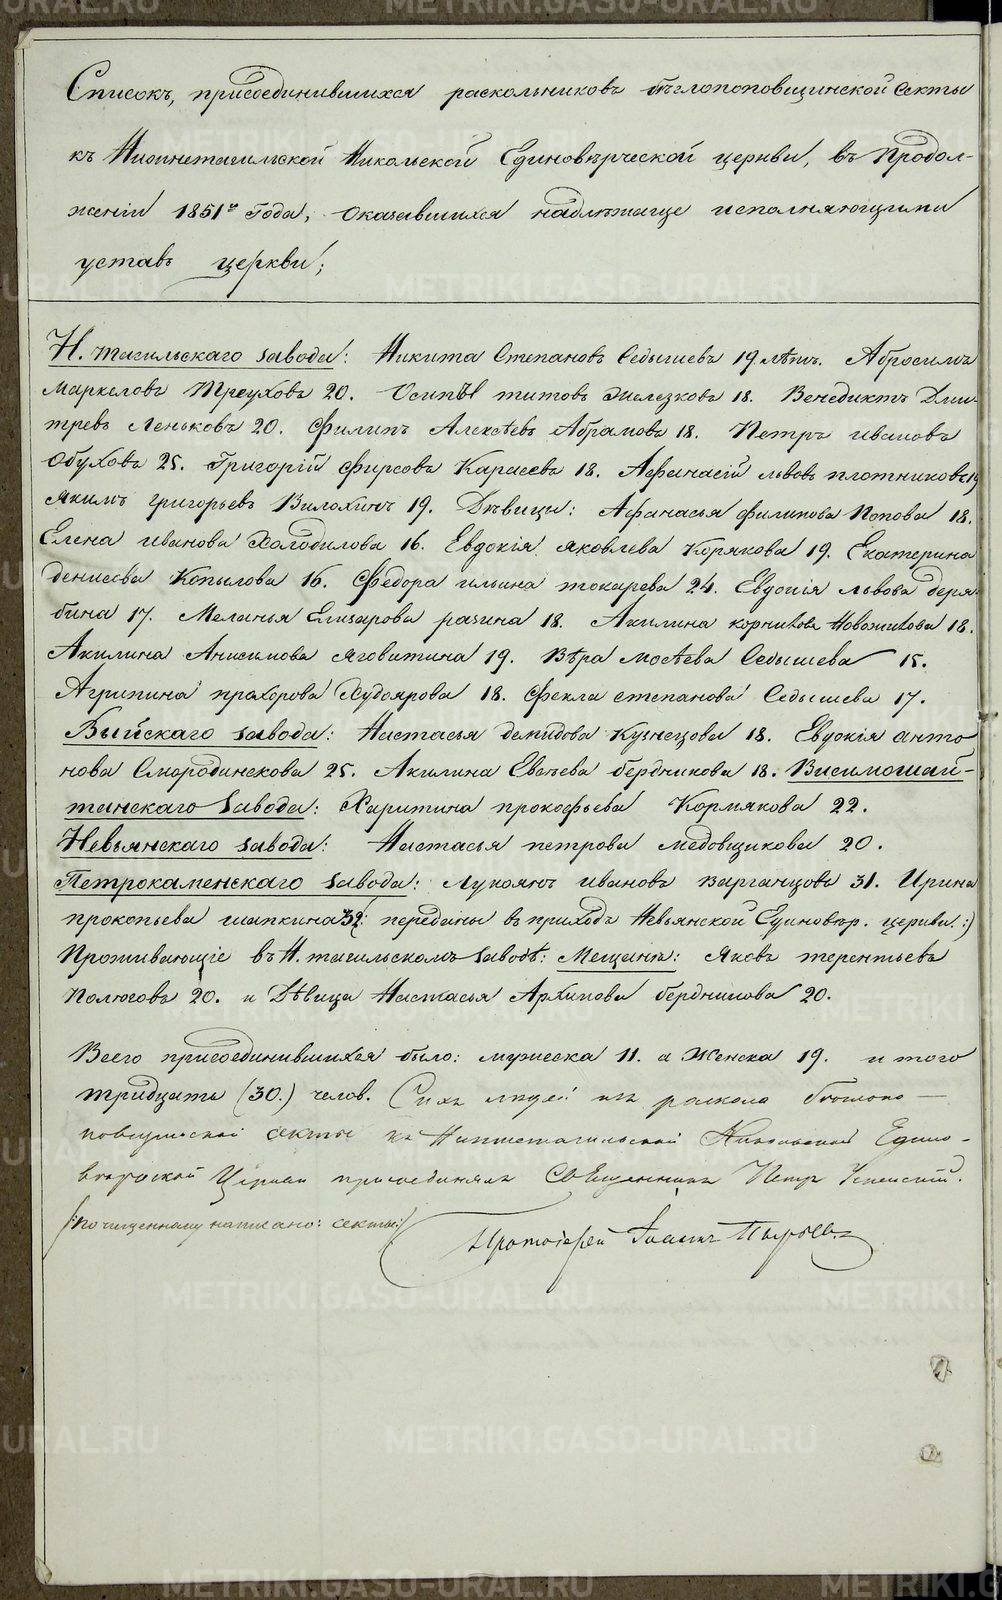 METRIKI.GASO-URAL.RU
Списокъ, присоединившихся раскольниковъ бѣглопоповщинской секты
къ Нижнетагильской Никольской Единовѣрческой церкви, въ продол-
женіи 1851го года, оказавшихся надлѣжаще исполняющими
уставъ церкви;
Н. тагильскаго завода: Никита Степановъ Седышевъ 19 лѣтъ. Абросимъ
Маркеловъ Треуховъ 20. Осипъ титовъ Железковъ 18. Венедиктъ Дми-
тревъ Леньковъ 20. Филипъ Алексѣевъ Абрамовъ 18. Петръ ивановъ
Обуховъ 25. Григорій Фирсовъ Карасевъ 18. Афанасій львовъ плотниковъ 19
Якимъ григорьевъ Вилохинъ 19. Дѣвицы: Афанасья филипова Попова 18.
Елена иванова Холодилова 16. Евдокія яковлева Корякова 19. Екатерина
денисова Копылова 16. Федора ильина токарева 24. Евдокія львова деря-
бина 17. Меланья Елизарова разина 18. Акилина корнилова Новожилова 18.
Акилина Анисимова Яговитина 19. Вѣра мосѣева Седышева 15.
Агрипина прохорова Худоярова 18. Фекла степанова Седышева 17.
Выйскаго завода: Настасья демидова Кузнецова 18. Евдокія анто
нова Смородинскова 25. Акилина Евсѣева бердникова 18. Висимошай-
танскаго завода: Харитина прокофьева Кормякова 22.
Невьянскаго завода: Настасья петрова медовщикова 20.
Петрокаменскаго завода: Лукоянъ ивановъ Варганцовъ 31. Ирина
прокопьева шапкина 32 (: переданы въ приходъ Невьянской Единовѣр. церкви. :)
Проживающіе въ Н. тагильскомъ заводѣ: Мещанъ: Яковъ терентьевъ
Полюговъ 20. и Дѣвица Настасья Архипова бердникова 20.
Всего присоединившихся было: мужеска 11. а Женска 19. и того
тридцать (30.) челов. Сихъ людей изъ раскола бѣглопо-
повщинской секты къ Нижнетагильской Никольской Едино-
вѣрческой Церкви присоединялъ Священникъ Петръ Успенскій.
/: по чищенному написано: секты :/
Протоіерей Іоаннъ Пырьевъ